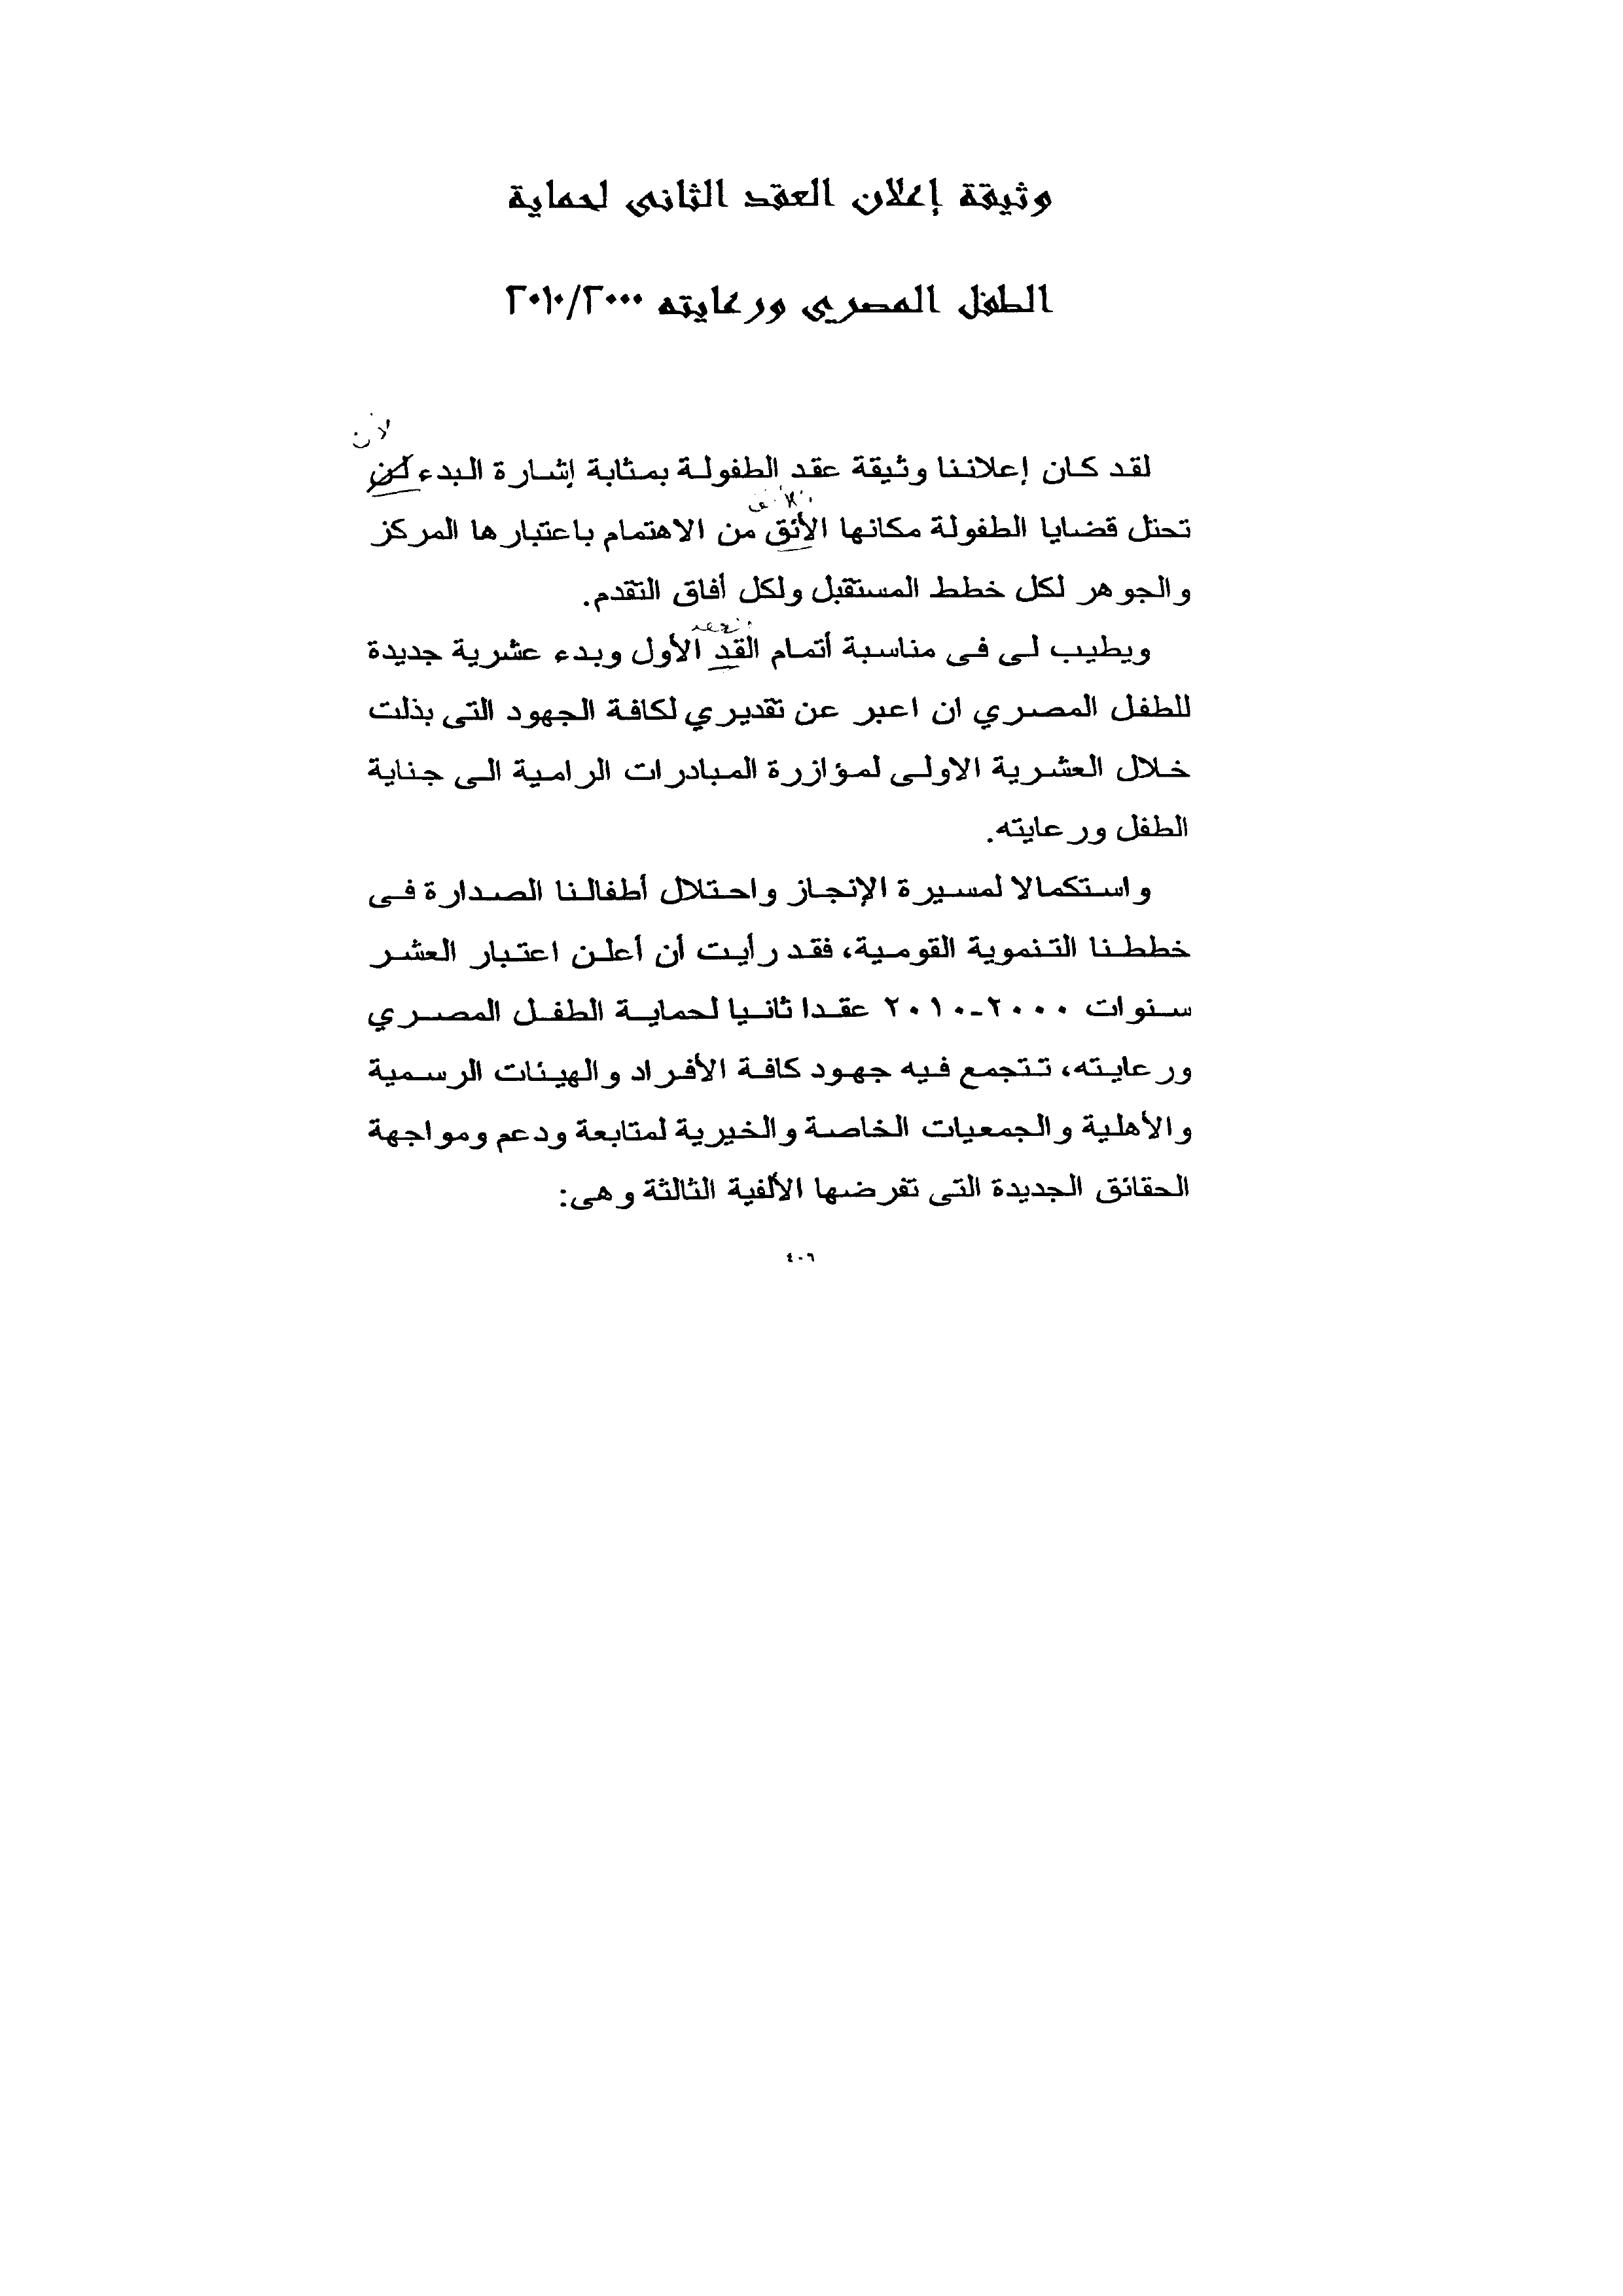 وثيقة إعلان العقد الثانى لحماية
الطفل المصري ورعايته ٢٠١٠/٢٠٠٠
لأن
لقد كان إعلاننا وثيقة عقد الطفولة بمثابة إشارة البدء لكن
تحتل قضايا الطفولة مكانها الأئق من الاهتمام باعتبارها المركز
والجوهر لكل خطط المستقبل ولكل أفاق التقدم.
ويطيب لى فى مناسبة أتمام القد الأول وبدء عشرية جديدة
للطفل المصري ان اعبر عن تقديري لكافة الجهود التى بذلت
خلال العشرية الاولى لمؤازرة المبادرات الرامية الى جناية
الطفل ورعايته.
واستكمالا لمسيرة الإنجاز واحتلال أطفالنا الصدارة فى
خططنا التنموية القومية، فقد رأيت أن أعلن اعتبار العشر
سنوات ٢٠٠٠-٢٠١٠ عقدا ثانيا لحماية الطفل المصري
ورعايته، تتجمع فيه جهود كافة الأفراد والهيئات الرسمية
والأهلية والجمعيات الخاصة والخيرية لمتابعة ودعم ومواجهة
الحقائق الجديدة التى تفرضها الألفية الثالثة وهى:
٤٠٦